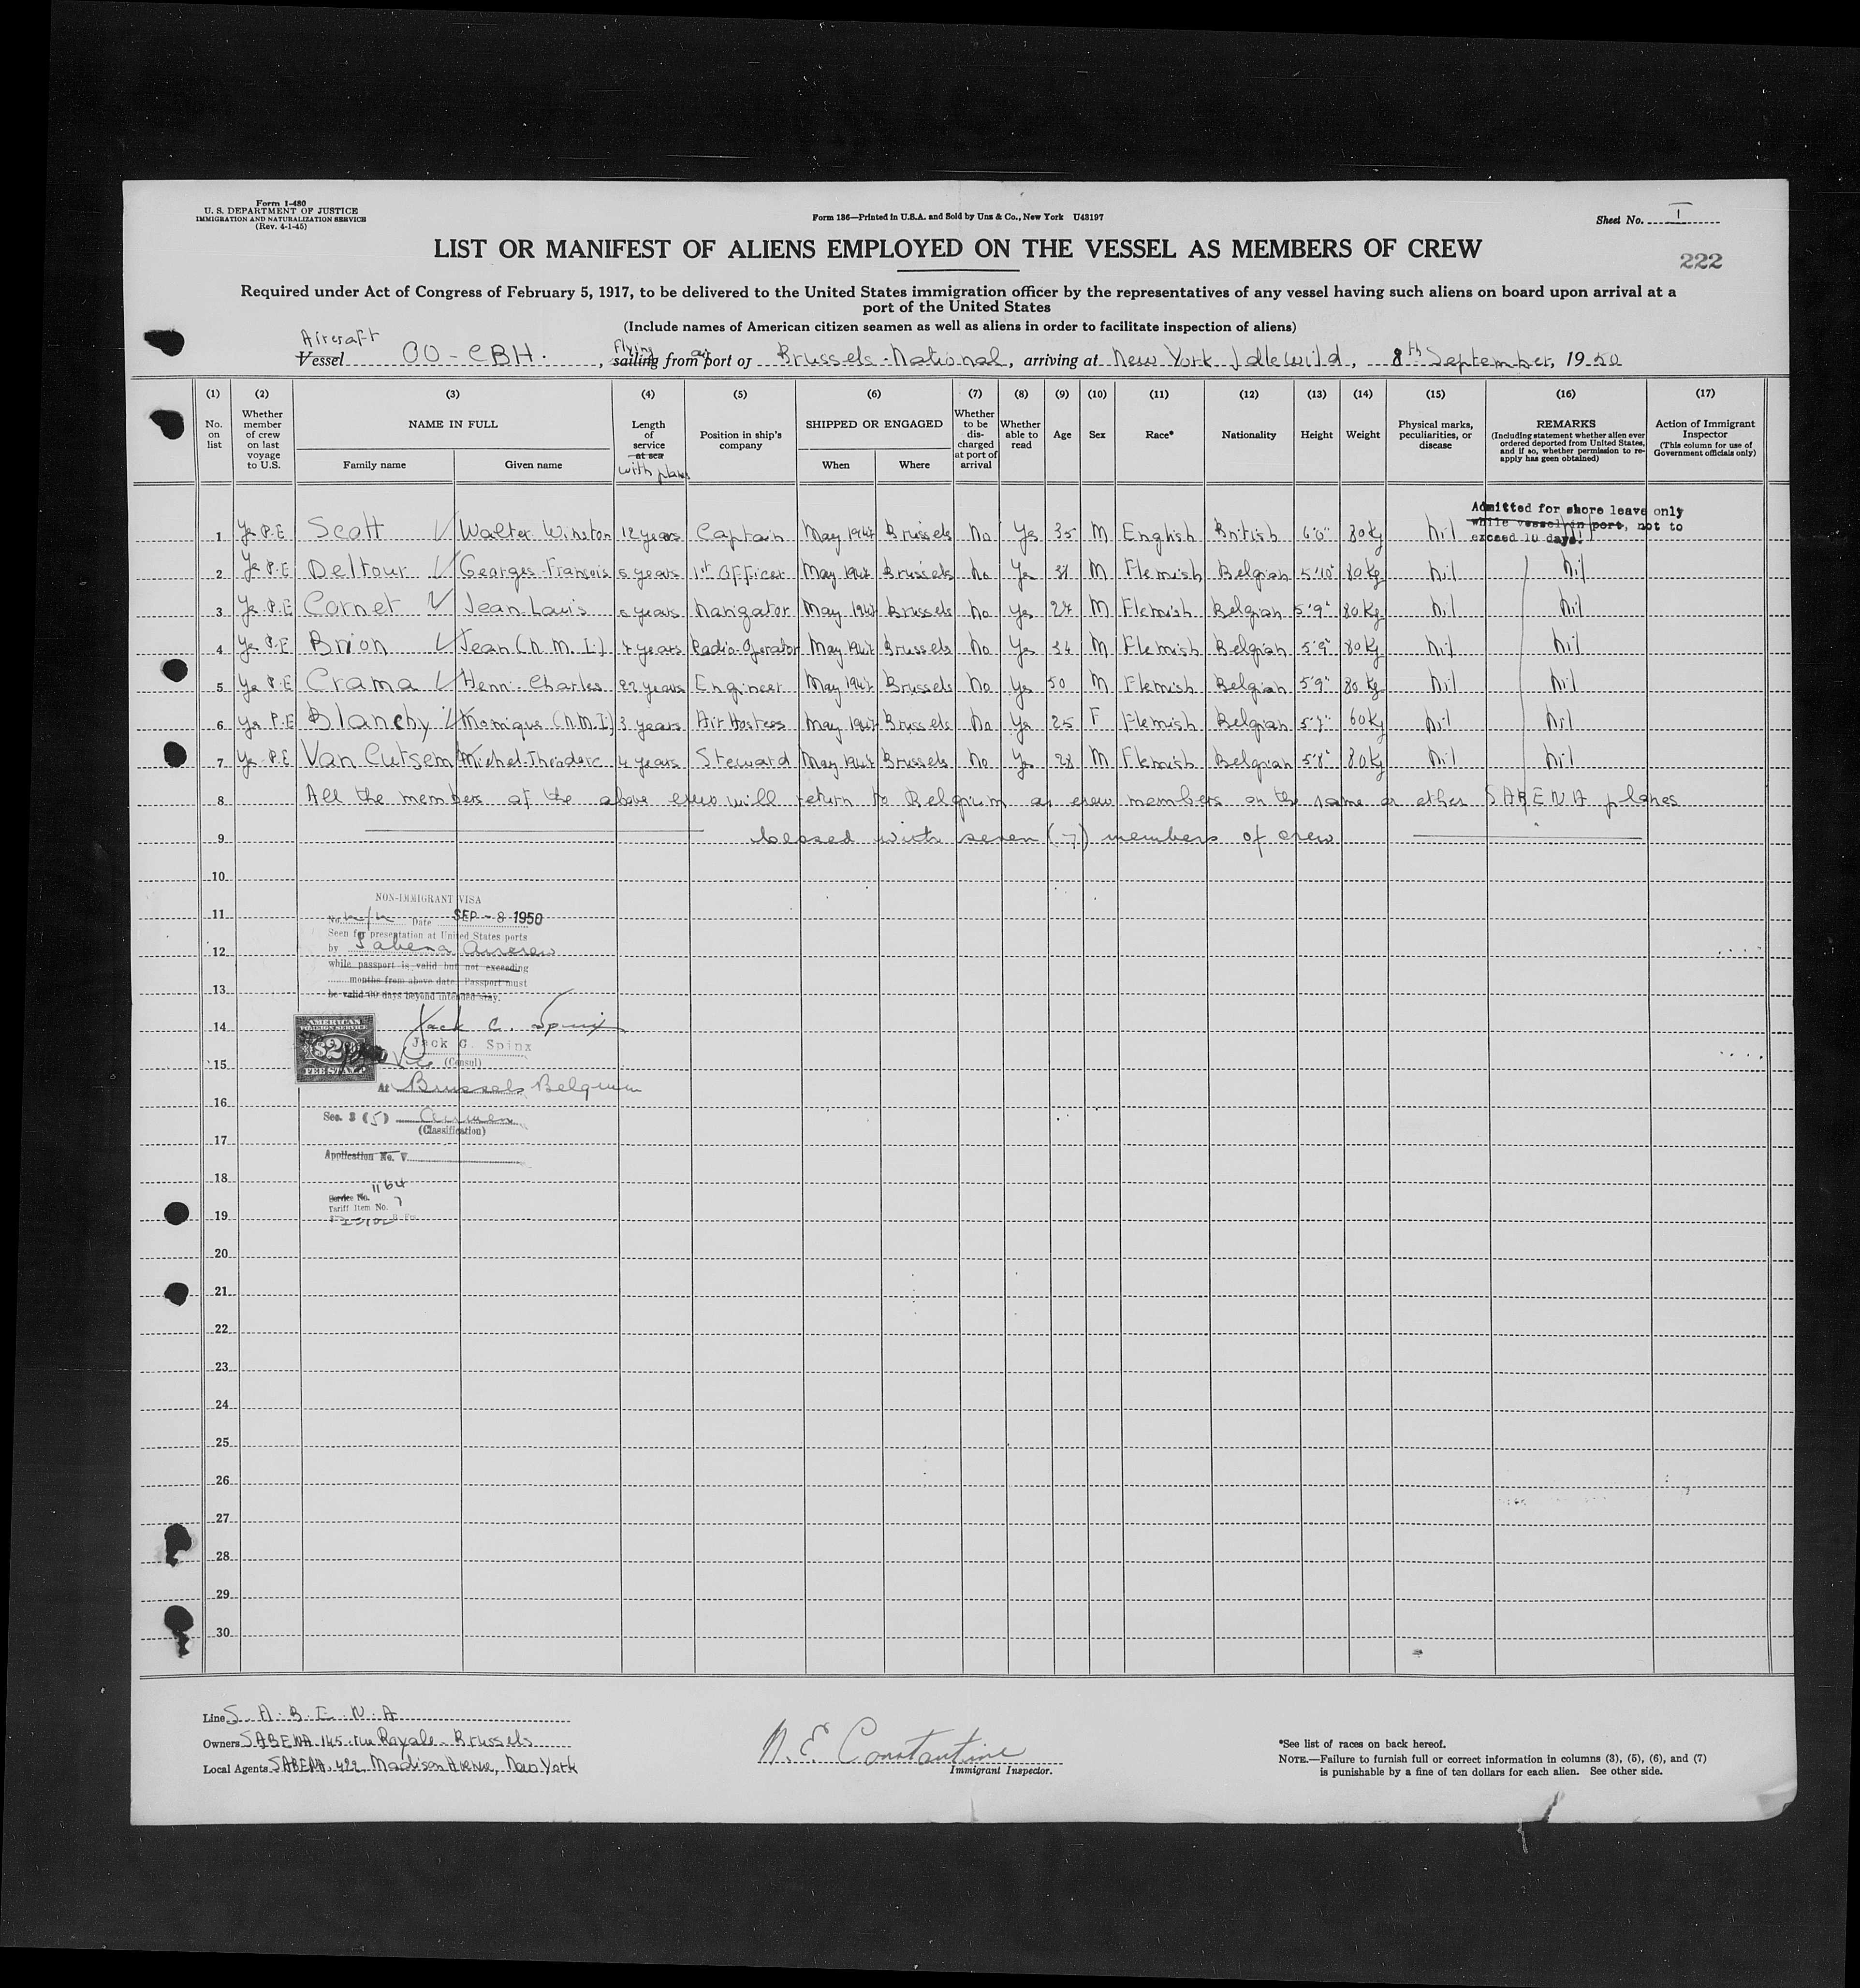 Form I-480
U. S. DEPARTMENT OF JUSTICE
IMMIGRATION AND NATURALIZATION SERVICE
(Rev. 4-1-45)
Form 136—Printed in U.S.A. and Sold by Unz & Co., New York U43197
Sheet No. I
LIST OR MANIFEST OF ALIENS EMPLOYED ON THE VESSEL AS MEMBERS OF CREW
222
Required under Act of Congress of February 5, 1917, to be delivered to the United States immigration officer by the representatives of any vessel having such aliens on board upon arrival at a
port of the United States
(Include names of American citizen seamen as well as aliens in order to facilitate inspection of aliens)
Aircraft Flying air
Vessel OO-CBH. , sailing from port of Brussels-National, arriving at New York Idlewild, 8th September, 1950
(1) (2) (3) (4) (5) (6) (7) (8) (9) (10) (11) (12) (13) (14) (15) (16) (17)
No. on list
Whether member of crew on last voyage to U.S.
NAME IN FULL
Family name Given name
Length of service at sea with plane
Position in ship's company
SHIPPED OR ENGAGED
When Where
Whether to be discharged at port of arrival
Whether able to read
Age
Sex
Race*
Nationality
Height
Weight
Physical marks, peculiarities, or disease
REMARKS
(Including statement whether alien ever ordered deported from United States, and if so, whether permission to re-apply has geen obtained)
Action of Immigrant Inspector
(This column for use of Government officials only)
Admitted for shore leave only
while vessel in port, not to
exceed 10 days.
1 Yes P.E Scott Walter Winston 12 years Captain May 1947 Brussels No Yes 35 M English British 6'0" 80Kg Nil
2 Yes P.E Deltour Georges-François 5 years 1st Officer May 1947 Brussels No Yes M Flemish Belgian 5'10" 80Kg Nil Nil
3 Yes P.E Cornet Jean Louis years Navigator May 1947 Brussels No Yes 27 M Flemish Belgian 5'9" 80Kg Nil Nil
4 Yes P.E Brion Jean (N.M.I.) 7 years Radio-Operator May 1947 Brussels No Yes 34 M Flemish Belgian 5'9" 80Kg Nil Nil
5 Yes P.E Crama Henri Charles 22 years Engineer May 1947 Brussels No Yes 50 M Flemish Belgian 5'9" 80 Kg Nil Nil
6 Yes P.E Blanchy Monique (N.M.I.) 3 years Air Hostess May 1947 Brussels No Yes 25 F Flemish Belgian 5'7" 60Kg Nil Nil
7 Yes P.E Van Cutsem Michel-Théodore 4 years Steward May 1947 Brussels No Yes 28 M Flemish Belgian 5'8" 80Kg Nil Nil
8 All the members of the above crew will return to Belgium as crew members on the same or other SABENA planes
9 closed with seven (7) members of crew
10
11
12
13
14
15
16
17
18
19
20
21
22
23
24
25
26
27
28
29
30
NON-IMMIGRANT VISA
No. Date SEP - 8 1950
Seen for presentation at United States ports
by Sabena Aircrew
while passport is valid but not exceeding
months from above date. Passport must
be valid 60 days beyond intended stay.
AMERICAN
FOREIGN SERVICE
$2
FEE STAMP
Jack G. Spinx
Jack G. Spinx
Vice (Consul)
At Brussels, Belgium
Sec. 3 (5) Airmen
(Classification)
Application No. V
Service No. 1164
Tariff Item No. 7
Line S. A. B. E. N. A
Owners SABENA 145 rue Royale-Brussels
Local Agents SABENA, 422, Madison Avenue, New York
N. E. Constantine
Immigrant Inspector.
*See list of races on back hereof.
NOTE.—Failure to furnish full or correct information in columns (3), (5), (6), and (7)
is punishable by a fine of ten dollars for each alien. See other side.